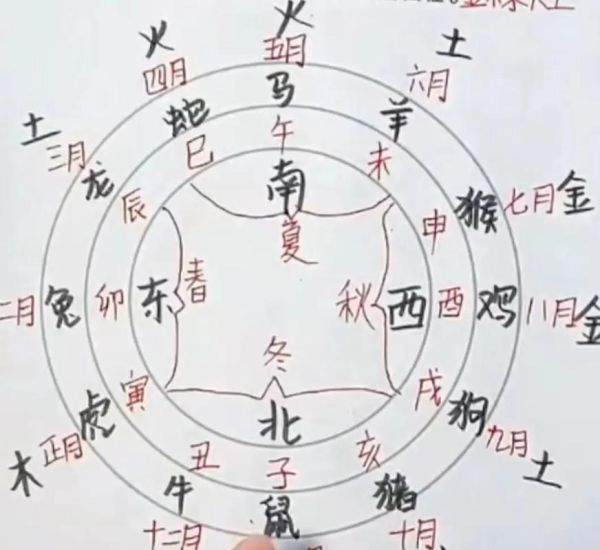 火
五月
马
午
南
夏
土
六月
羊
未
金
七月
猴
申
金
八月
鸡
酉
西
秋
土
九月
狗
戌
十月
猪
亥
鼠
子
北
冬
十二月
牛
丑
木
正月
虎
寅
二月
兔
卯
东
春
土
三月
龙
辰
火
四月
蛇
巳